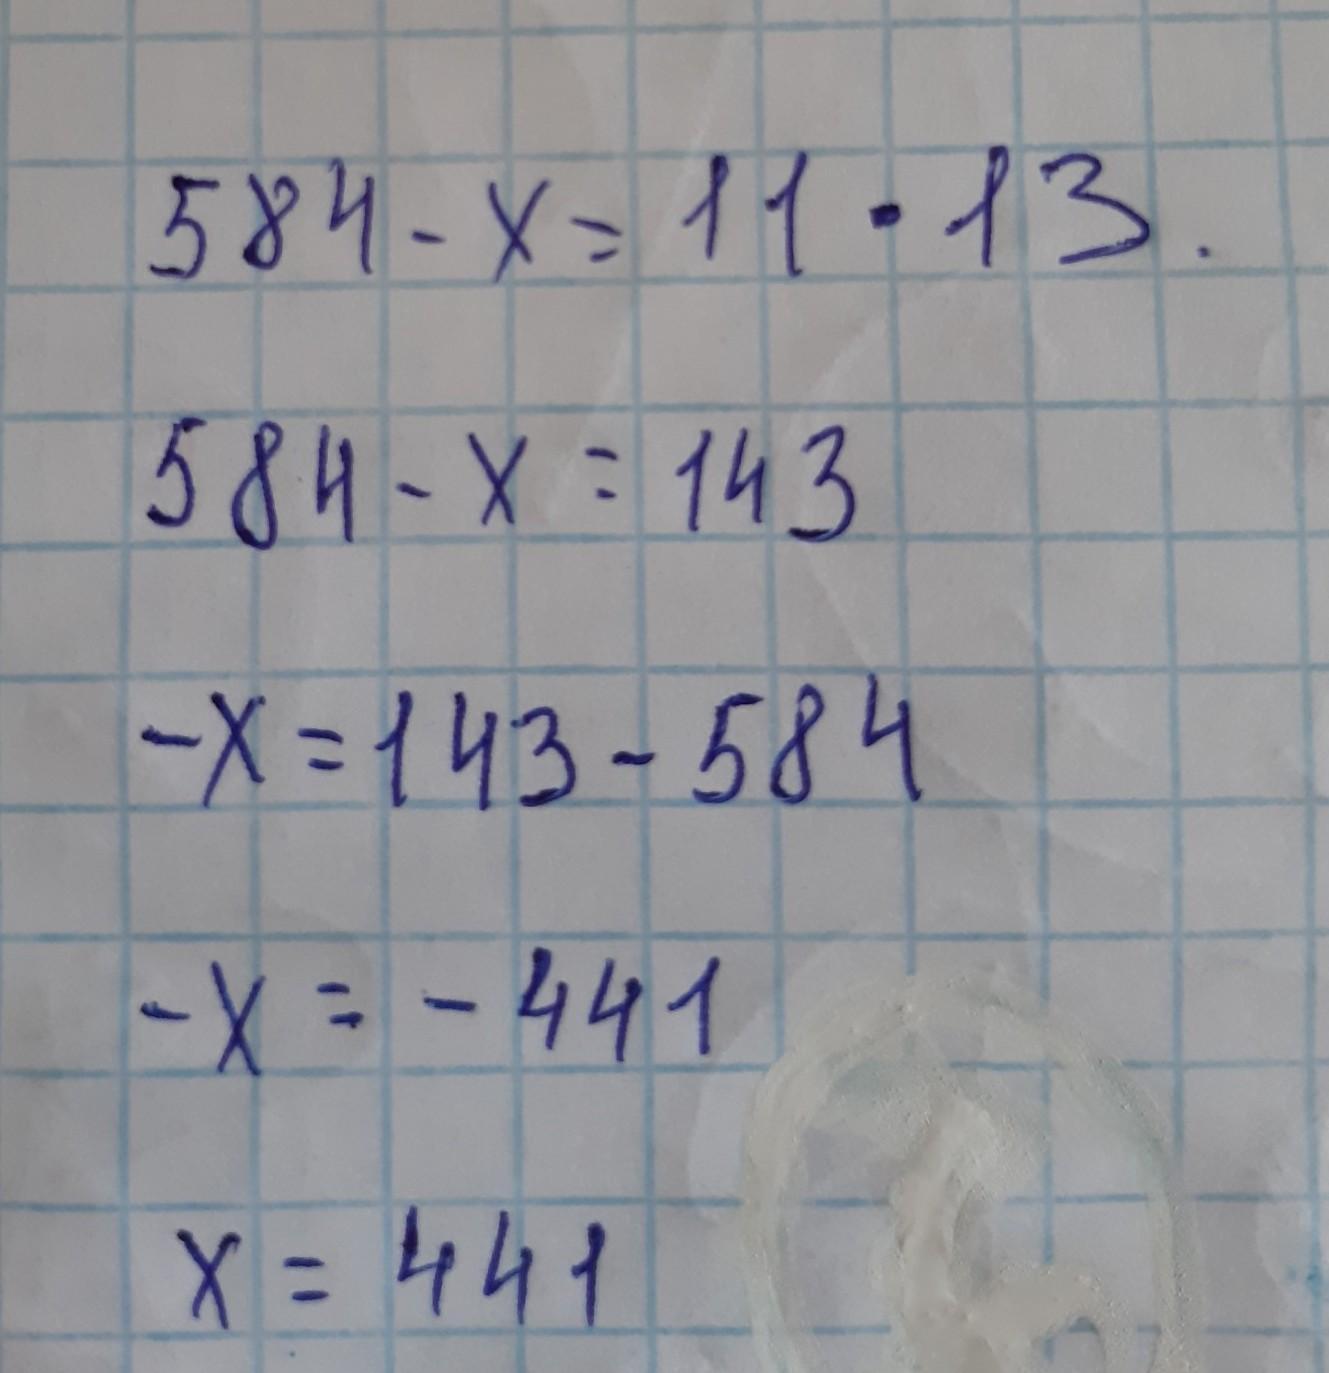 584 - x = 11 · 13.
584 - x = 143
-x = 143 - 584
-x = - 441
x = 441